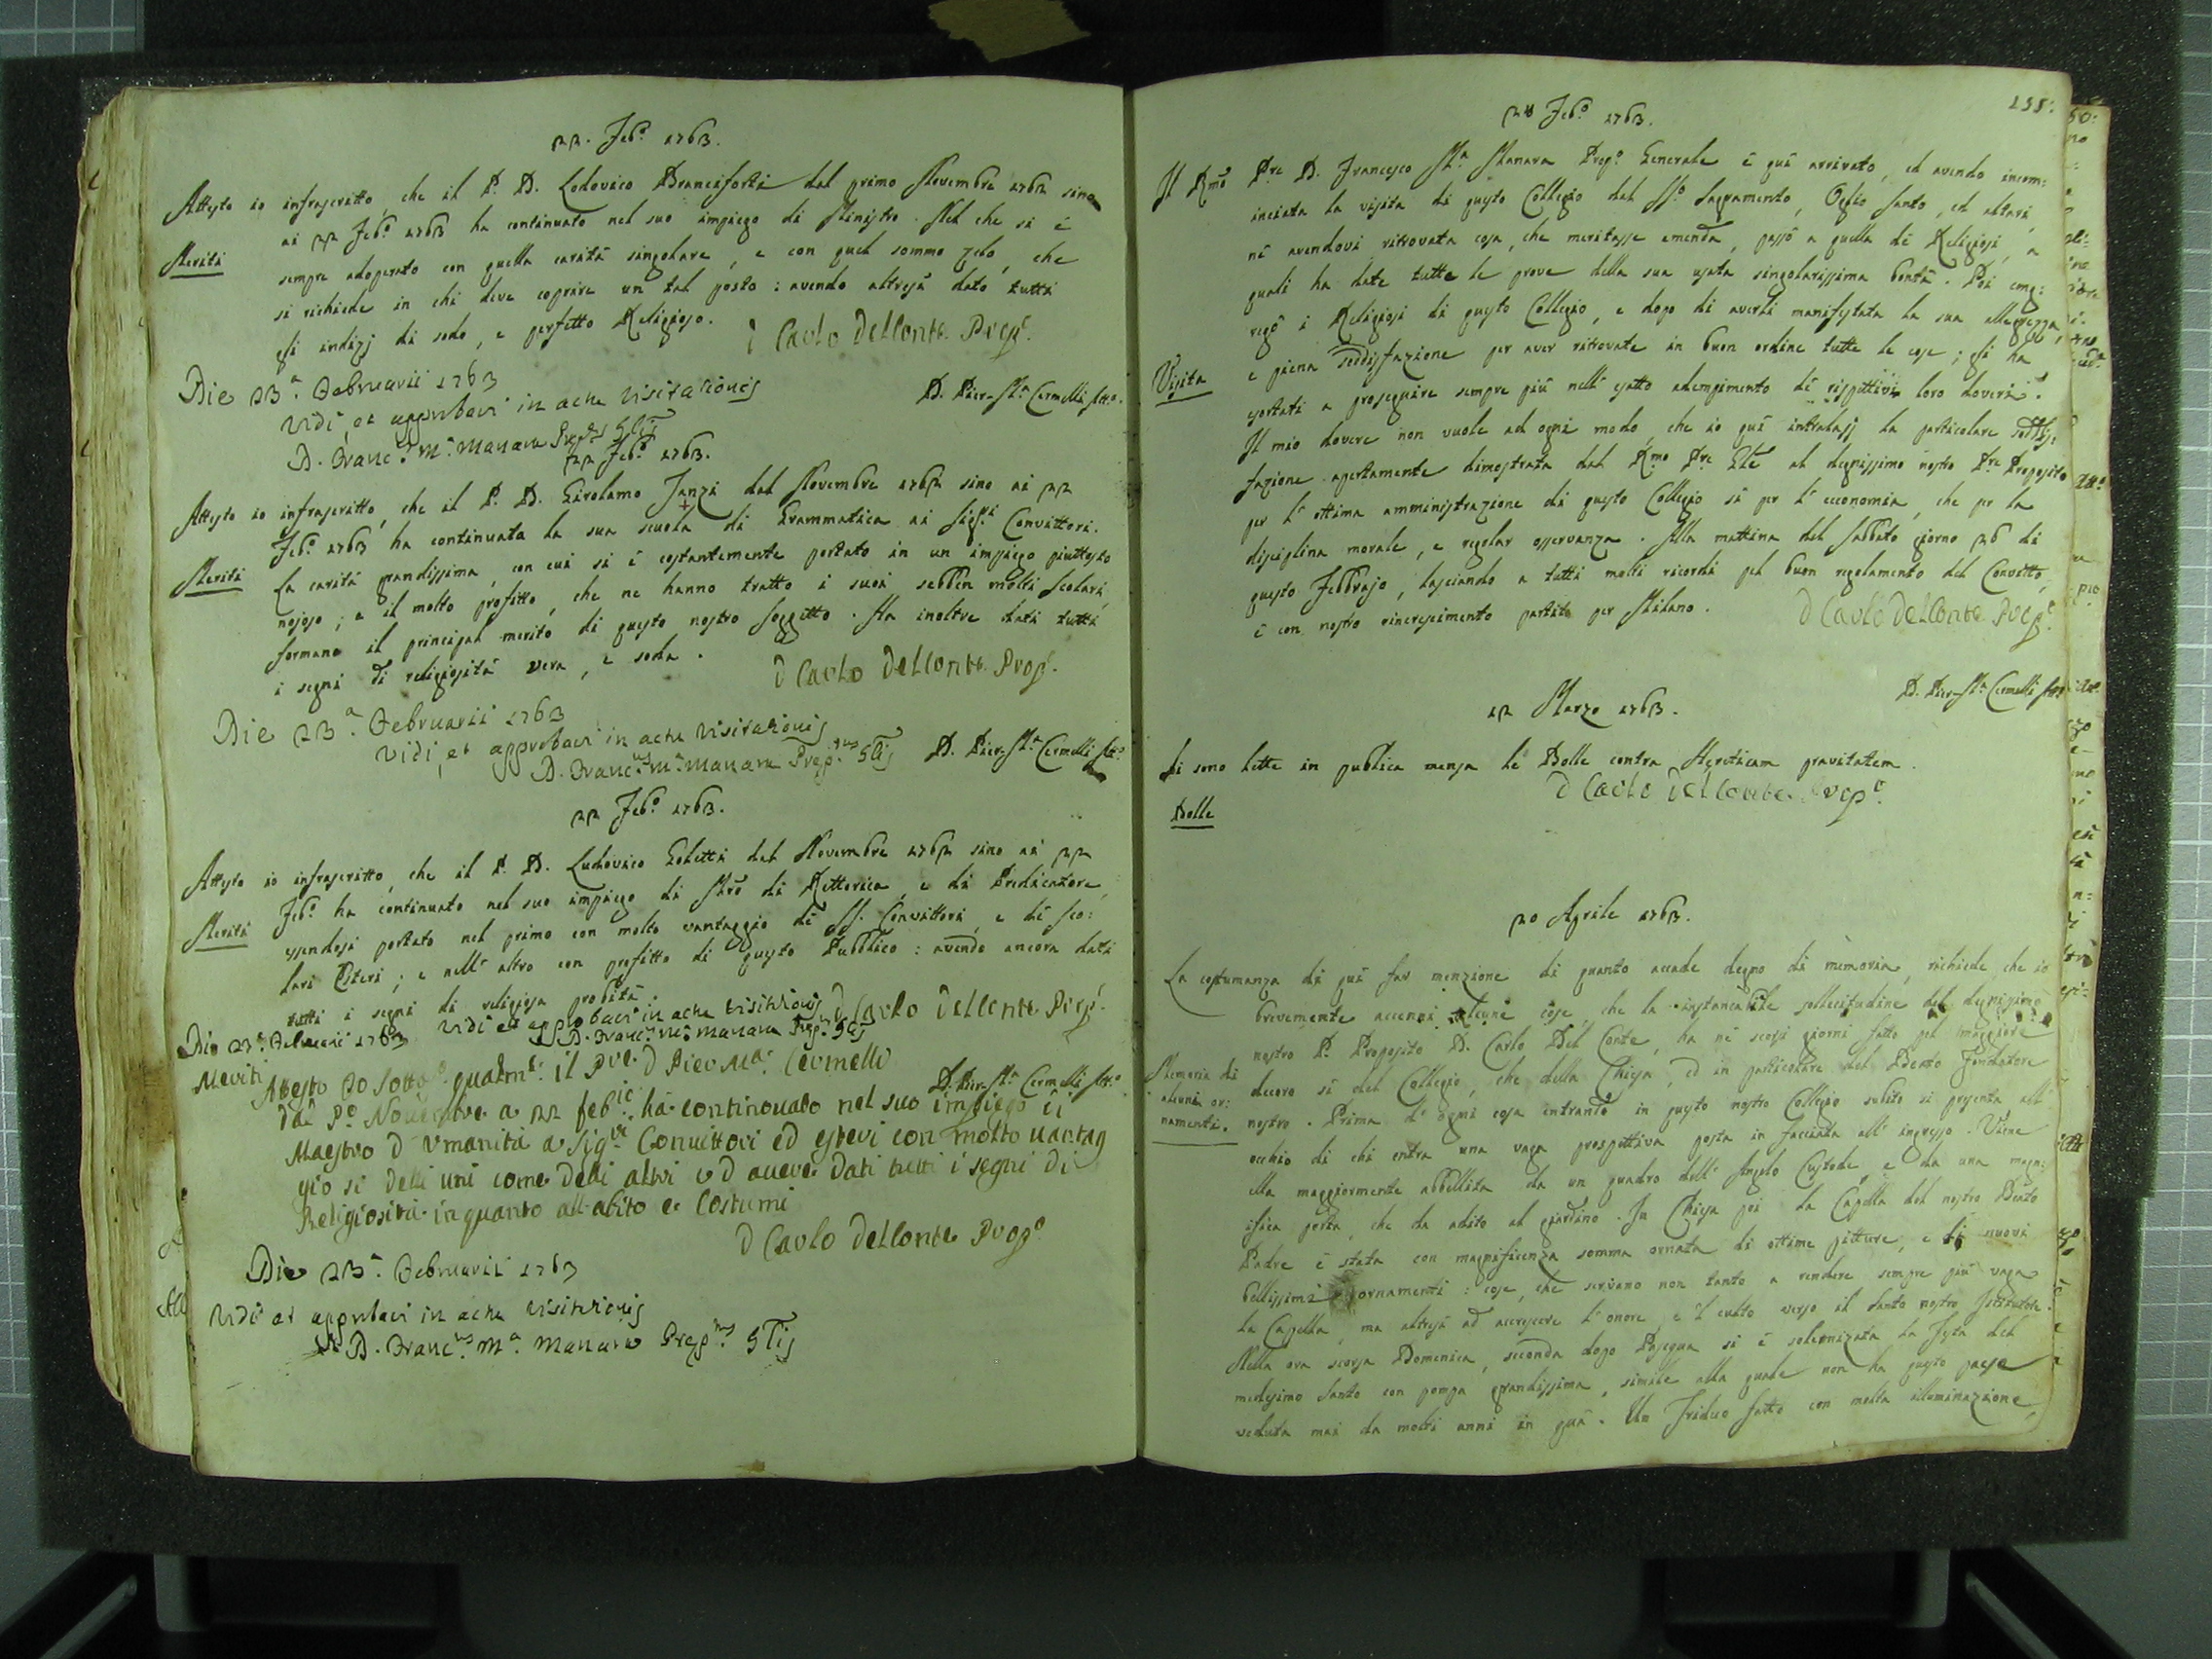 22. Feb.º 1763.
Attesto io infrascritto, che il P. D. Lodovico Branciforti dal primo Novembre 1762 sino
ai 22 Feb.º 1763 ha continuato nel suo impiego di Ministro. Nel che si è
Meriti
sempre adoperato con quella carità singolare, e con quel sommo zelo, che
si richiede in chi deve coprire un tal posto: avendo altresì dato tutti
gli indizj di sodo, e perfetto Religioso.
D Carlo DelConte Prep.º
Die 23.ª Februarii 1763
D. Pier M.ª Cermelli Att.º
Vidi, et approbavi in actu visitationis
D. Franc.us M.ª Manara Prep.tus Glis
22 Feb.º 1763.
Attesto io infrascritto, che il P. D. Girolamo Janzi dal Novembre 1762 sino ai 22
Feb.º 1763 ha continuata la sua scuola di Grammatica ai Sig.ri Convittori.
Meriti
La carità grandissima, con cui si è costantemente portato in un impiego piuttosto
nojoso; e il molto profitto, che ne hanno tratto i suoi sebben molti Scolari,
formano il principal merito di questo nostro soggetto. Ha inoltre dati tutti
i segni di religiosità vera, e soda.
D Carlo DelConte Prep.º
Die 23.ª Februarii 1763
Vidi, et approbavi in actu visitationis
D. Franc.us M.ª Manara Prep.tus Glis
D. Pier M.ª Cermelli Att.º
22 Feb.º 1763.
Attesto io infrascritto, che il P. D. Ludovico Goletti dal Novembre 1762 sino ai 22
Feb.º ha continuato nel suo impiego di Mro di Rettorica, e di Predicatore,
Meriti
essendosi portato nel primo con molto vantaggio di SS. Convittori, e di Sco:
lari Esteri; e nell' altro con profitto di questo Pubblico: avendo ancora dati
tutti i segni di religiosa probità
D Carlo DelConte Prep.º
Die 23.ª Februarii 1763 Vidi et approbavi in actu visitationis
D. Franc.us M.ª Manara Prep.tus Glis
Meriti
Attesto Io sotto qualm.e il Pre D Pier M.ª Cermelli
D. Pier M.ª Cermelli Att.º
dal P.º Novembre a 22 feb.º ha continovato nel suo impiego di
Maestro d' Umanità a Sig.ri Convittori ed esteri con molto vantag
gio si delli uni come delli altri ed avere dati tutti i segni di
Religiosità in quanto all' abito e Costumi
D Carlo DelConte Prep.º
Die 23.ª Februarii 1763
Vidi et approbavi in actu visitationis
D. Franc.us M.ª Manara Prep.tus Glis
155.
Feb.º 1763.
Il Rmo Pre D. Francesco M.ª Manara Prep.º Generale è quì arrivato, ed avendo incom:
inciata la visita di questo Collegio dal SS.º Sagramento, Oglio Santo, ed altari,
nè avendovi ritrovata cosa, che meritasse emenda, passò a quella di Religiosi, a
quali ha date tutte le prove della sua usata singolarissima bontà. Poi cong:
regò i Religiosi di questo Collegio, e dopo di averli manifestata la sua allegrezza,
Visita
e piena soddisfazione per aver ritrovate in buon ordine tutte le cose; gli ha
esortati a proseguire sempre più nell' esatto adempimento di rispettivi loro doveri.
Il mio dovere non vuole ad ogni modo, che io quì intralasj la particolare soddis,
fazione apertamente dimostrata dal Rmo Pre Gle al degnissimo nostro Pre Preposito
per l' ottima amministrazione di questo Collegio sì per l' economia, che per la
disciplina morale, e regolar osservanza. Alla mattina del Sabbato giorno 26 di
questo Febbrajo, lasciando a tutti molti ricordi pel buon regolamento del Convitto,
è con nostro rincrescimento partito per Milano.
D Carlo DelConte Prep.º
D. Pier M.ª Cermelli Att.º
12 Marzo 1763.
Si sono lette in publica mensa le Bolle contra Hereticam pravitatem.
D Carlo DelConte Prep.º
Bolle
20 Aprile 1763.
La costumanza di quì far menzione di quanto accade degno di memoria, richiede, che io
brevemente accenni alcune cose, che la instancabile sollecitudine del degnissimo
nostro P. Preposito D. Carlo Del Conte, ha nè scorsi giorni fatto pel maggiore
Memoria di
alcuni or:
namenti.
decoro sì del Collegio, che della Chiesa, ed in particolare del Beato Fondatore
nostro. Prima d' ogni cosa entrando in questo nostro Collegio subito si presenta all'
occhio di chi entra una vaga prospettiva posta in facciata all' ingresso. Viene
ella maggiormente abbellita da un quadro dell' Angelo Custode, e da una magn:
ifica porta, che da adito al giardino. In Chiesa poi la Capella del nostro Beato
Padre è stata con magnificenza somma ornata di ottime pitture, e di nuovi
bellissimi ornamenti: cose, che servono non tanto a rendere sempre più vaga
la Capella, ma altresì ad accrescere l' onore, e 'l culto verso il Santo nostro Istitutore.
Nella ora scorsa Domenica, seconda dopo Pasqua si è solennizata la Festa del
medesimo Santo con pompa grandissima, simile alla quale non ha questo paese
veduta mai da molti anni in quà. Un Triduo fatto con molta illuminazione,